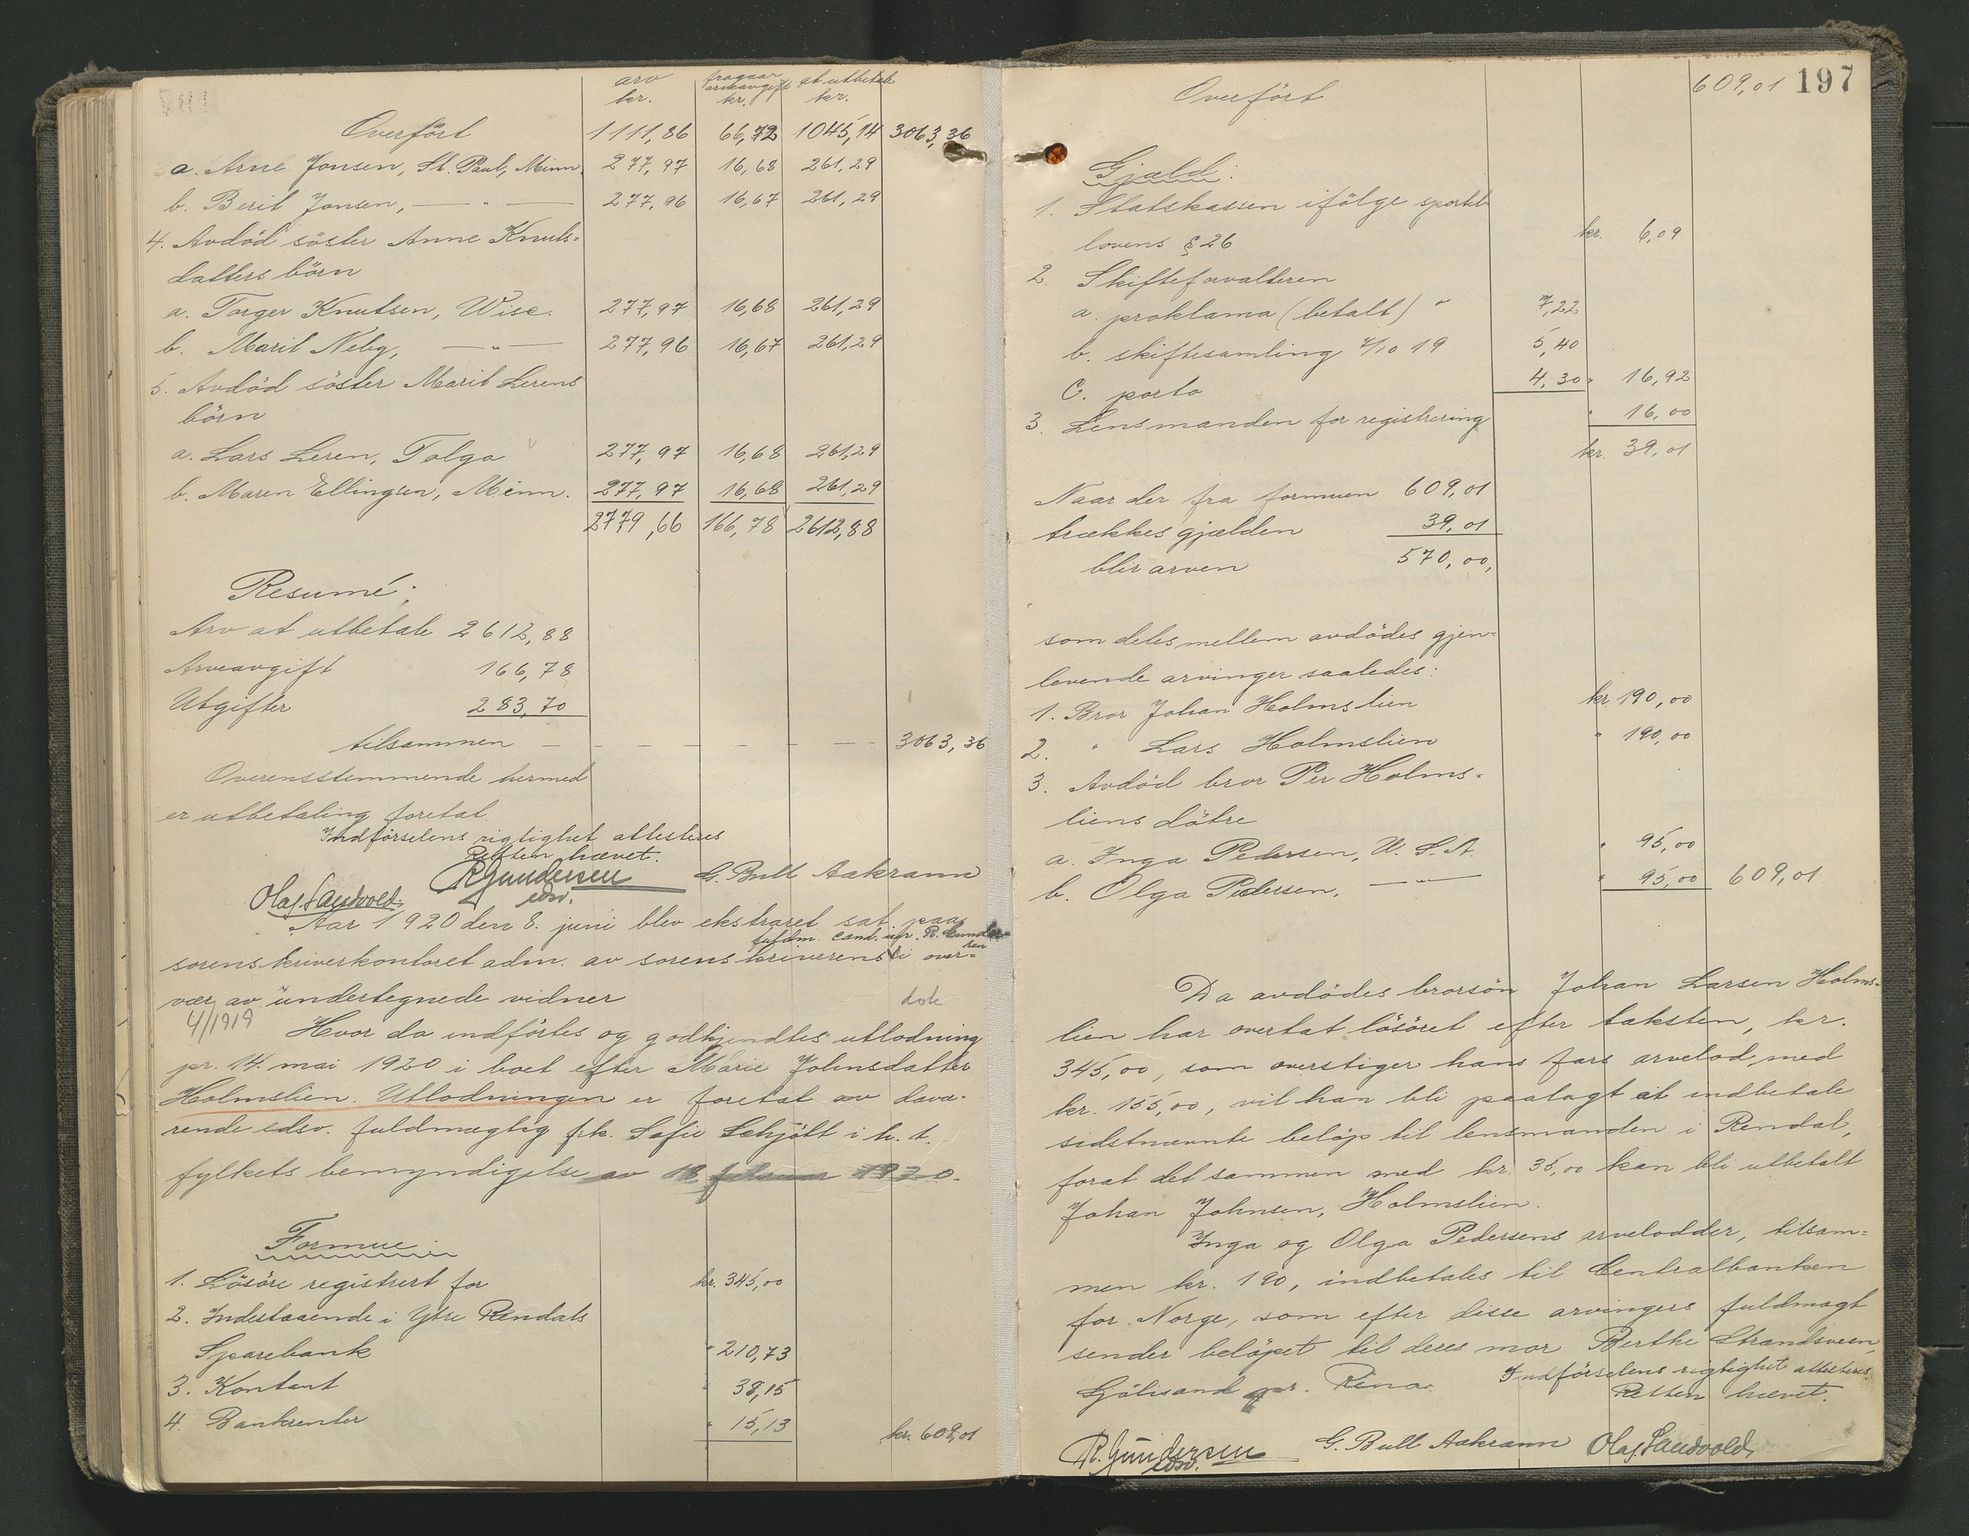 arv fragaar at utbetale
arveavgift
kr. kr. kr.
Overført 1111,86 66,72 1045,14 3063,36
a. Arne Jonsen, St. Paul, Minn. 277,97 16,68 261,29
b. Berit Jonsen, — " — 277,96 16,67 261,29
4. Avdød søster Anne Knuts-
datters børn
a. Torger Knutsen, Wisc. 277,97 16,68 261,29
b. Marit Neby, — " — 277,96 16,67 261,29
5. Avdød søster Marit Lerens
børn
a. Lars Leren, Tolga 277,97 16,68 261,29
b. Maren Ellingsen, Minn. 277,97 16,68 261,29
2779,66 166,78 2612,88
Resumé:
Arv at utbetale 2612,88
Arveavgift 166,78
Utgifter 283,70
tilsammen — — — — — — 3063,36
Overensstemmende hermed
er utbetaling foretat.
Indførselens rigtighet attesteres
Retten hævet.
Olaf Sandvold. R Gundersen G. Bull Aakrann
edsv.
Aar 1920 den 8. juni blev ekstraret sat paa
fuldm. cand. jur. R. Gunder-
sen
sorenskriverkontoret adm. av sorenskriverens i over-
vær av undertegnede vidner
4/1919 dok
Hvor da indførtes og godkjendtes utlodning
pr. 14. mai 1920 i boet efter Marie Johnsdatter
Holmslien. Utlodningen er foretat av dava-
rende edsv. fuldmægtig frk. Sofie Schjölt i h. t.
fylkets bemyndigelse av 18 februar 1920.
Formue:
1. Løsøre registrert for kr. 345,00
2. Indestaaende i Ytre Rendals
Sparebank " 210,73
3. Kontant " 38,15
4. Bankrenter " 15,13 kr. 609,01
197
Overført 609,01
Gjæld:
1. Statskassen ifølge sportel-
lovens § 26 kr. 6,09
2. Skifteforvalteren
a. proklama (betalt) " 7,22
b. skiftesamling 7/10 19 5,40
C. porto 4,30 " 16,92
3. Lensmanden for registrering " 16,00
kr. 39,01
Naar der fra formuen 609,01
trækkes gjælden 39,01
blir arven 570,00,
som deles mellem avdødes gjen-
levende arvinger saaledes:
1. Bror Johan Holmslien kr. 190,00
2. " Lars Holmslien " 190,00
3. Avdød bror Per Holms-
liens døtre
a. Inga Pedersen, U. S. A. " 95,00
b. Olga Pedersen, — " — " 95,00 609,01
Da avdødes brorsøn Johan Larsen Holms-
lien har overtat løsøret efter taksten, kr.
345,00, som overstiger hans fars arvelod med
kr. 155,00, vil han bli paalagt at indbetale
sidstnævnte beløp til lensmanden i Rendal,
forat det sammen med kr. 35,00 kan bli utbetalt
Johan Johnsen, Holmslien.
Inga og Olga Pedersens arvelodder, tilsam-
men kr. 190, indbetales til Centralbanken
for Norge, som efter disse arvingers fuldmagt
sender beløpet til deres mor Berthe Strandsveen,
pr. Rena.
Indførselens rigtighet attesteres
Retten hævet.
R. Gundersen G. Bull Aakrann Olaf Sandvold,
edsv.